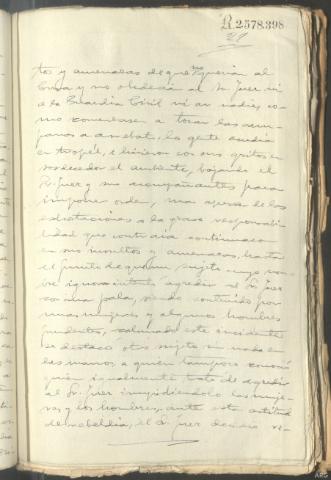 R.2578.398
21
tos y amenazas de que no querian al
Cura y no obedecia al Sr Juez ni
a la Guardia Civil ni a nadie, co-
mo comenzasen a tocar las cam-
panas a arrebato, la gente acudia
en tropel, e hicieron con sus gritos en-
sordecedor el ambiente, bajando el
Sr. Juez y sus acompañantes para
imponer orden, mas apesar de las
exhortaciones a la grave responsabi-
lidad que contraia continuaron
en sus insultos y amenazas, hasta
el punto de que un sujeto cuyo nom-
bre ignora intentó agredir al Sr. Juez
con una pala, siendo contenido por
unas mujeres y algunos hombres
prudentes, calmado este incidente
se destacó otro sujeto sin nada en
las manos a quien tampoco conoció
quien igualmente trató de agredir
al Sr. Juez impidiendolo las muje-
res y los hombres, ante esta actitud
de rebeldia, el Sr. Juez decidió re-
ARG